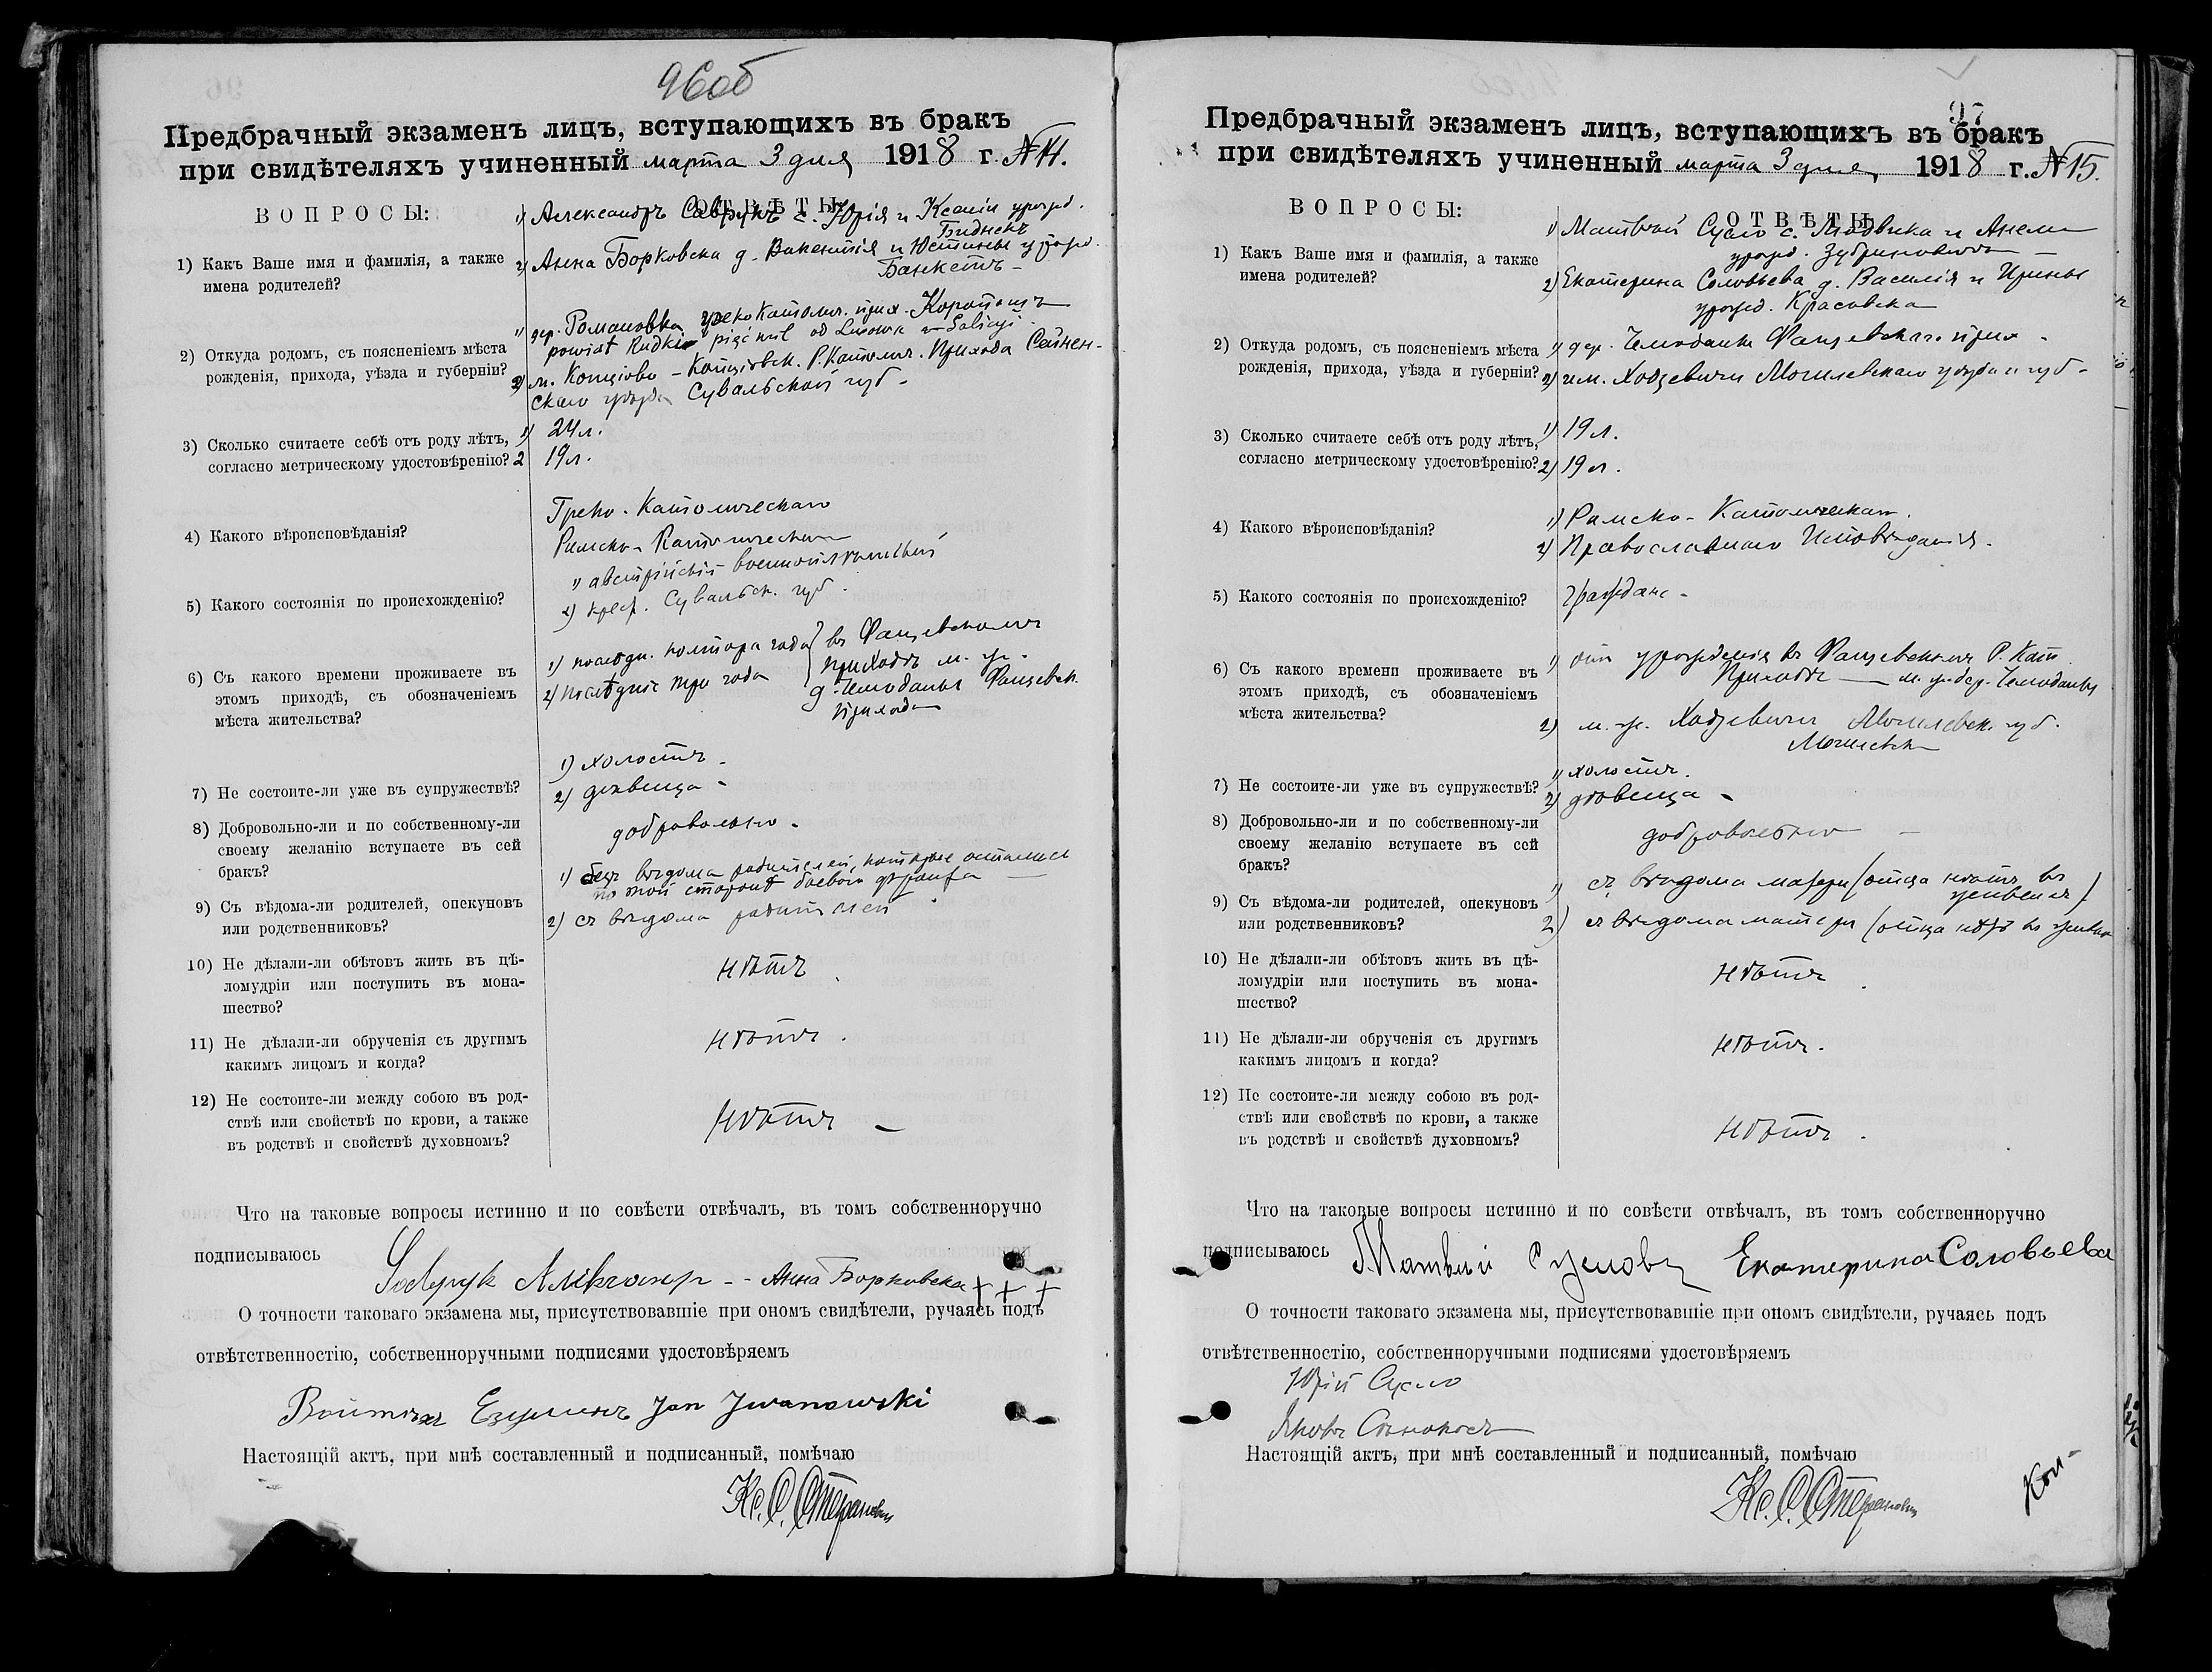 96об
Предбрачный экзаменъ лицъ, вступающихъ въ бракъ
при свидѣтеляхъ учиненный марта 3 дня 1918 г. №14.
ВОПРОСЫ:
ОТВѢТЫ:
1) Александръ Саврукъ с. Юрія и Ксеніи урожд.
1) Какъ Ваше имя и фамилія, а также
имена родителей?
2) Анна Борковска д. Викентія и Юстины урожд.
2) Откуда родомъ, съ поясненіемъ мѣста
рожденія, прихода, уѣзда и губерніи?
1) дер. Романовка греко Католич. прих.
powiat Rudki pięć mil od Lwowa w Galicyi
2) м. Копціово - Копціовск. Р. Католич. Прихода Сейнен-
скаго уѣзда Сувальской губ -
3) Сколько считаете себѣ отъ роду лѣтъ,
согласно метрическому удостовѣренію?
1) 24 л.
2 19 л.
4) Какого вѣроисповѣданія?
Греко-Католическаго
Римско-Католическаго
5) Какого состоянія по происхожденію?
1) австрійскій военноплѣнный
2) крест. Сувальск. губ.
6) Съ какого времени проживаете въ
этомъ приходѣ, съ обозначеніемъ
мѣста жительства?
1) послѣдн. полтора года } въ Фащевскомъ
приходѣ м. ж.
2) послѣдніе три года
д. Чемоданы Фащевск.
прихода
7) Не состоите-ли уже въ супружествѣ?
1) холостъ -
2) дѣвица -
8) Добровольно-ли и по собственному-ли
своему желанію вступаете въ сей
бракъ?
добровольно -
9) Съ вѣдома-ли родителей, опекуновъ
или родственниковъ?
1) безъ вѣдома родителей, которые остались
по той сторонѣ боевого фронта
2) съ вѣдома родителей
10) Не дѣлали-ли обѣтовъ жить въ цѣ-
ломудріи или поступить въ мона-
шество?
нѣтъ.
11) Не дѣлали-ли обрученія съ другимъ
какимъ лицомъ и когда?
нѣтъ.
12) Не состоите-ли между собою въ род-
ствѣ или свойствѣ по крови, а также
въ родствѣ и свойствѣ духовномъ?
нѣтъ -
Что на таковые вопросы истинно и по совѣсти отвѣчалъ, въ томъ собственноручно
подписываюсь
- - Анна Борковска + + +
О точности таковаго экзамена мы, присутствовавшіе при ономъ свидѣтели, ручаясь подъ
отвѣтственностію, собственноручными подписями удостовѣряемъ
Jan Iwanowski
Настоящій актъ, при мнѣ составленный и подписанный, помѣчаю
Кс. С.
97
Предбрачный экзаменъ лицъ, вступающихъ въ бракъ
при свидѣтеляхъ учиненный марта 3 дня 1918 г. №15.
ВОПРОСЫ:
ОТВѢТЫ:
1) Какъ Ваше имя и фамилія, а также
имена родителей?
1) Матвѣй Сусло с. Людвика и Анели
урожд. Зубриновичъ
2) Екатерина Соловьева д. Василія и Ирины
урожд. Красовска
2) Откуда родомъ, съ поясненіемъ мѣста
рожденія, прихода, уѣзда и губерніи?
1) дер. Чемоданы Фащевскаго прих -
2) им. Ходзевичи Могилевскаго уѣзда и губ -
3) Сколько считаете себѣ отъ роду лѣтъ,
согласно метрическому удостовѣренію?
1) 19 л.
2) 19 л.
4) Какого вѣроисповѣданія?
1) Римско-Католическаго.
2) Православнаго Исповѣданія.
5) Какого состоянія по происхожденію?
Граждане -
6) Съ какого времени проживаете въ
этомъ приходѣ, съ обозначеніемъ
мѣста жительства?
1) отъ урожденія въ Фащевскомъ Р. Кат.
Приходѣ — м. ж. дер. Чемоданы
2) м. ж. Ходзевичи Могилевск. губ.
7) Не состоите-ли уже въ супружествѣ?
1) холостъ.
2) дѣвица -
8) Добровольно-ли и по собственному-ли
своему желанію вступаете въ сей
бракъ?
добровольно -
9) Съ вѣдома-ли родителей, опекуновъ
или родственниковъ?
1) съ вѣдома матери (отца нѣтъ въ
живыхъ)
2) съ вѣдома матери (отца нѣтъ въ живых
10) Не дѣлали-ли обѣтовъ жить въ цѣ-
ломудріи или поступить въ мона-
шество?
нѣтъ.
11) Не дѣлали-ли обрученія съ другимъ
какимъ лицомъ и когда?
нѣтъ.
12) Не состоите-ли между собою въ род-
ствѣ или свойствѣ по крови, а также
въ родствѣ и свойствѣ духовномъ?
нѣтъ.
Что на таковые вопросы истинно и по совѣсти отвѣчалъ, въ томъ собственноручно
подписываюсь Матвѣй Екатерина Соловьева
О точности таковаго экзамена мы, присутствовавшіе при ономъ свидѣтели, ручаясь подъ
отвѣтственностію, собственноручными подписями удостовѣряемъ
Юрій Сусло
Настоящій актъ, при мнѣ составленный и подписанный, помѣчаю
Кс. С.